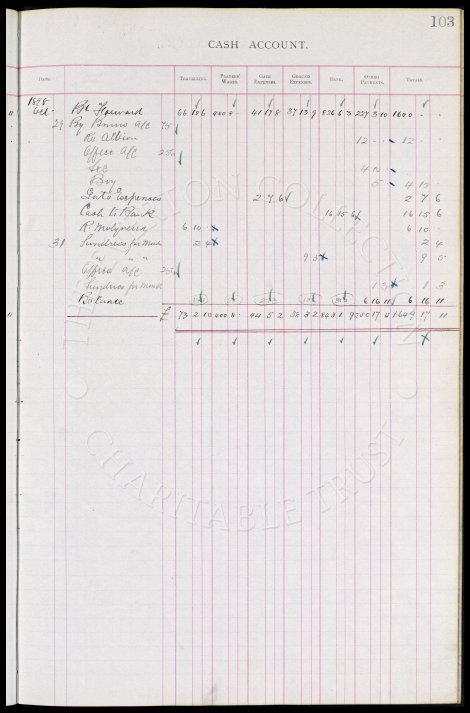 103
CASH ACCOUNT.
DATE. TRAVELLING. PLAYERS' WAGES. GATE EXPENSES. GROUND EXPENSES. BANK. OTHER PAYMENTS. TOTALS
1898
Oct. Bt Forward 66 400 8 41 17 8 37 13 9 3 10 1600
29 By Bonus A/c 75
Re Albion 12 - - 12 - -
Office A/c 250
Sec 4 10
Boy 5 4 15
Gate Expenses 2 7 6 2 7 6
Cash to Bank 16 15 6 16 15 6
R Molyneux 6 10 6 10
31 Sundries for Month 2 4 2 4
" " " 9 5 9 5
Office A/c 250
Sundries for Month 1 3 1 3
Balance 6 16 11 6 16 11
£ 73 2 10 400 8 44 5 2 38 3 2 17 1649 17 11
COLLECTION
CHARITABLE TRUST